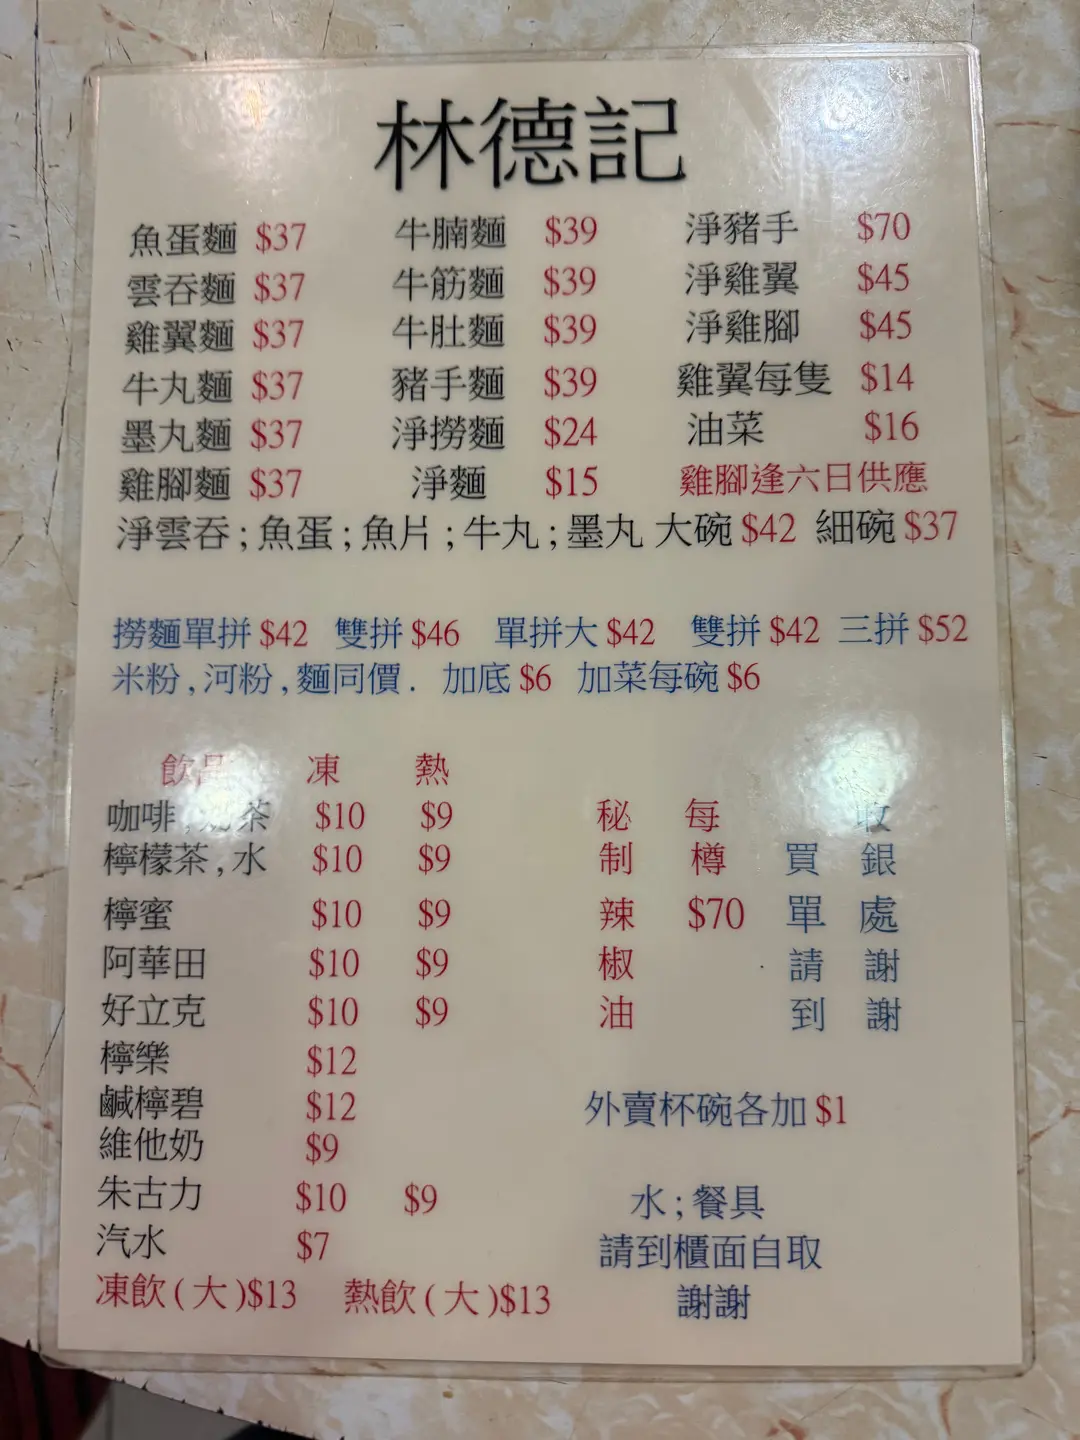 林德記
魚蛋麵 $37 牛腩麵 $39 淨豬手 $70
雲吞麵 $37 牛筋麵 $39 淨雞翼 $45
雞翼麵 $37 牛肚麵 $39 淨雞腳 $45
牛丸麵 $37 豬手麵 $39 雞翼每隻 $14
墨丸麵 $37 淨撈麵 $24 油菜 $16
雞腳麵 $37 淨麵 $15 雞腳逢六日供應
淨雲吞 ; 魚蛋 ; 魚片 ; 牛丸 ; 墨丸 大碗 $42 細碗 $37
撈麵單拼 $42 雙拼 $46 單拼大 $42 雙拼 $42 三拼 $52
米粉 , 河粉 , 麵同價 . 加底 $6 加菜每碗 $6
飲品 凍 熱
咖啡 , 奶茶 $10 $9
檸檬茶 , 水 $10 $9
檸蜜 $10 $9
阿華田 $10 $9
好立克 $10 $9
檸樂 $12
鹹檸碧 $12
維他奶 $9
朱古力 $10 $9
汽水 $7
凍飲 ( 大 )$13 熱飲 ( 大 )$13
秘制辣椒油
每樽 $70
買單請到
收銀處謝謝
外賣杯碗各加 $1
水 ; 餐具
請到櫃面自取
謝謝